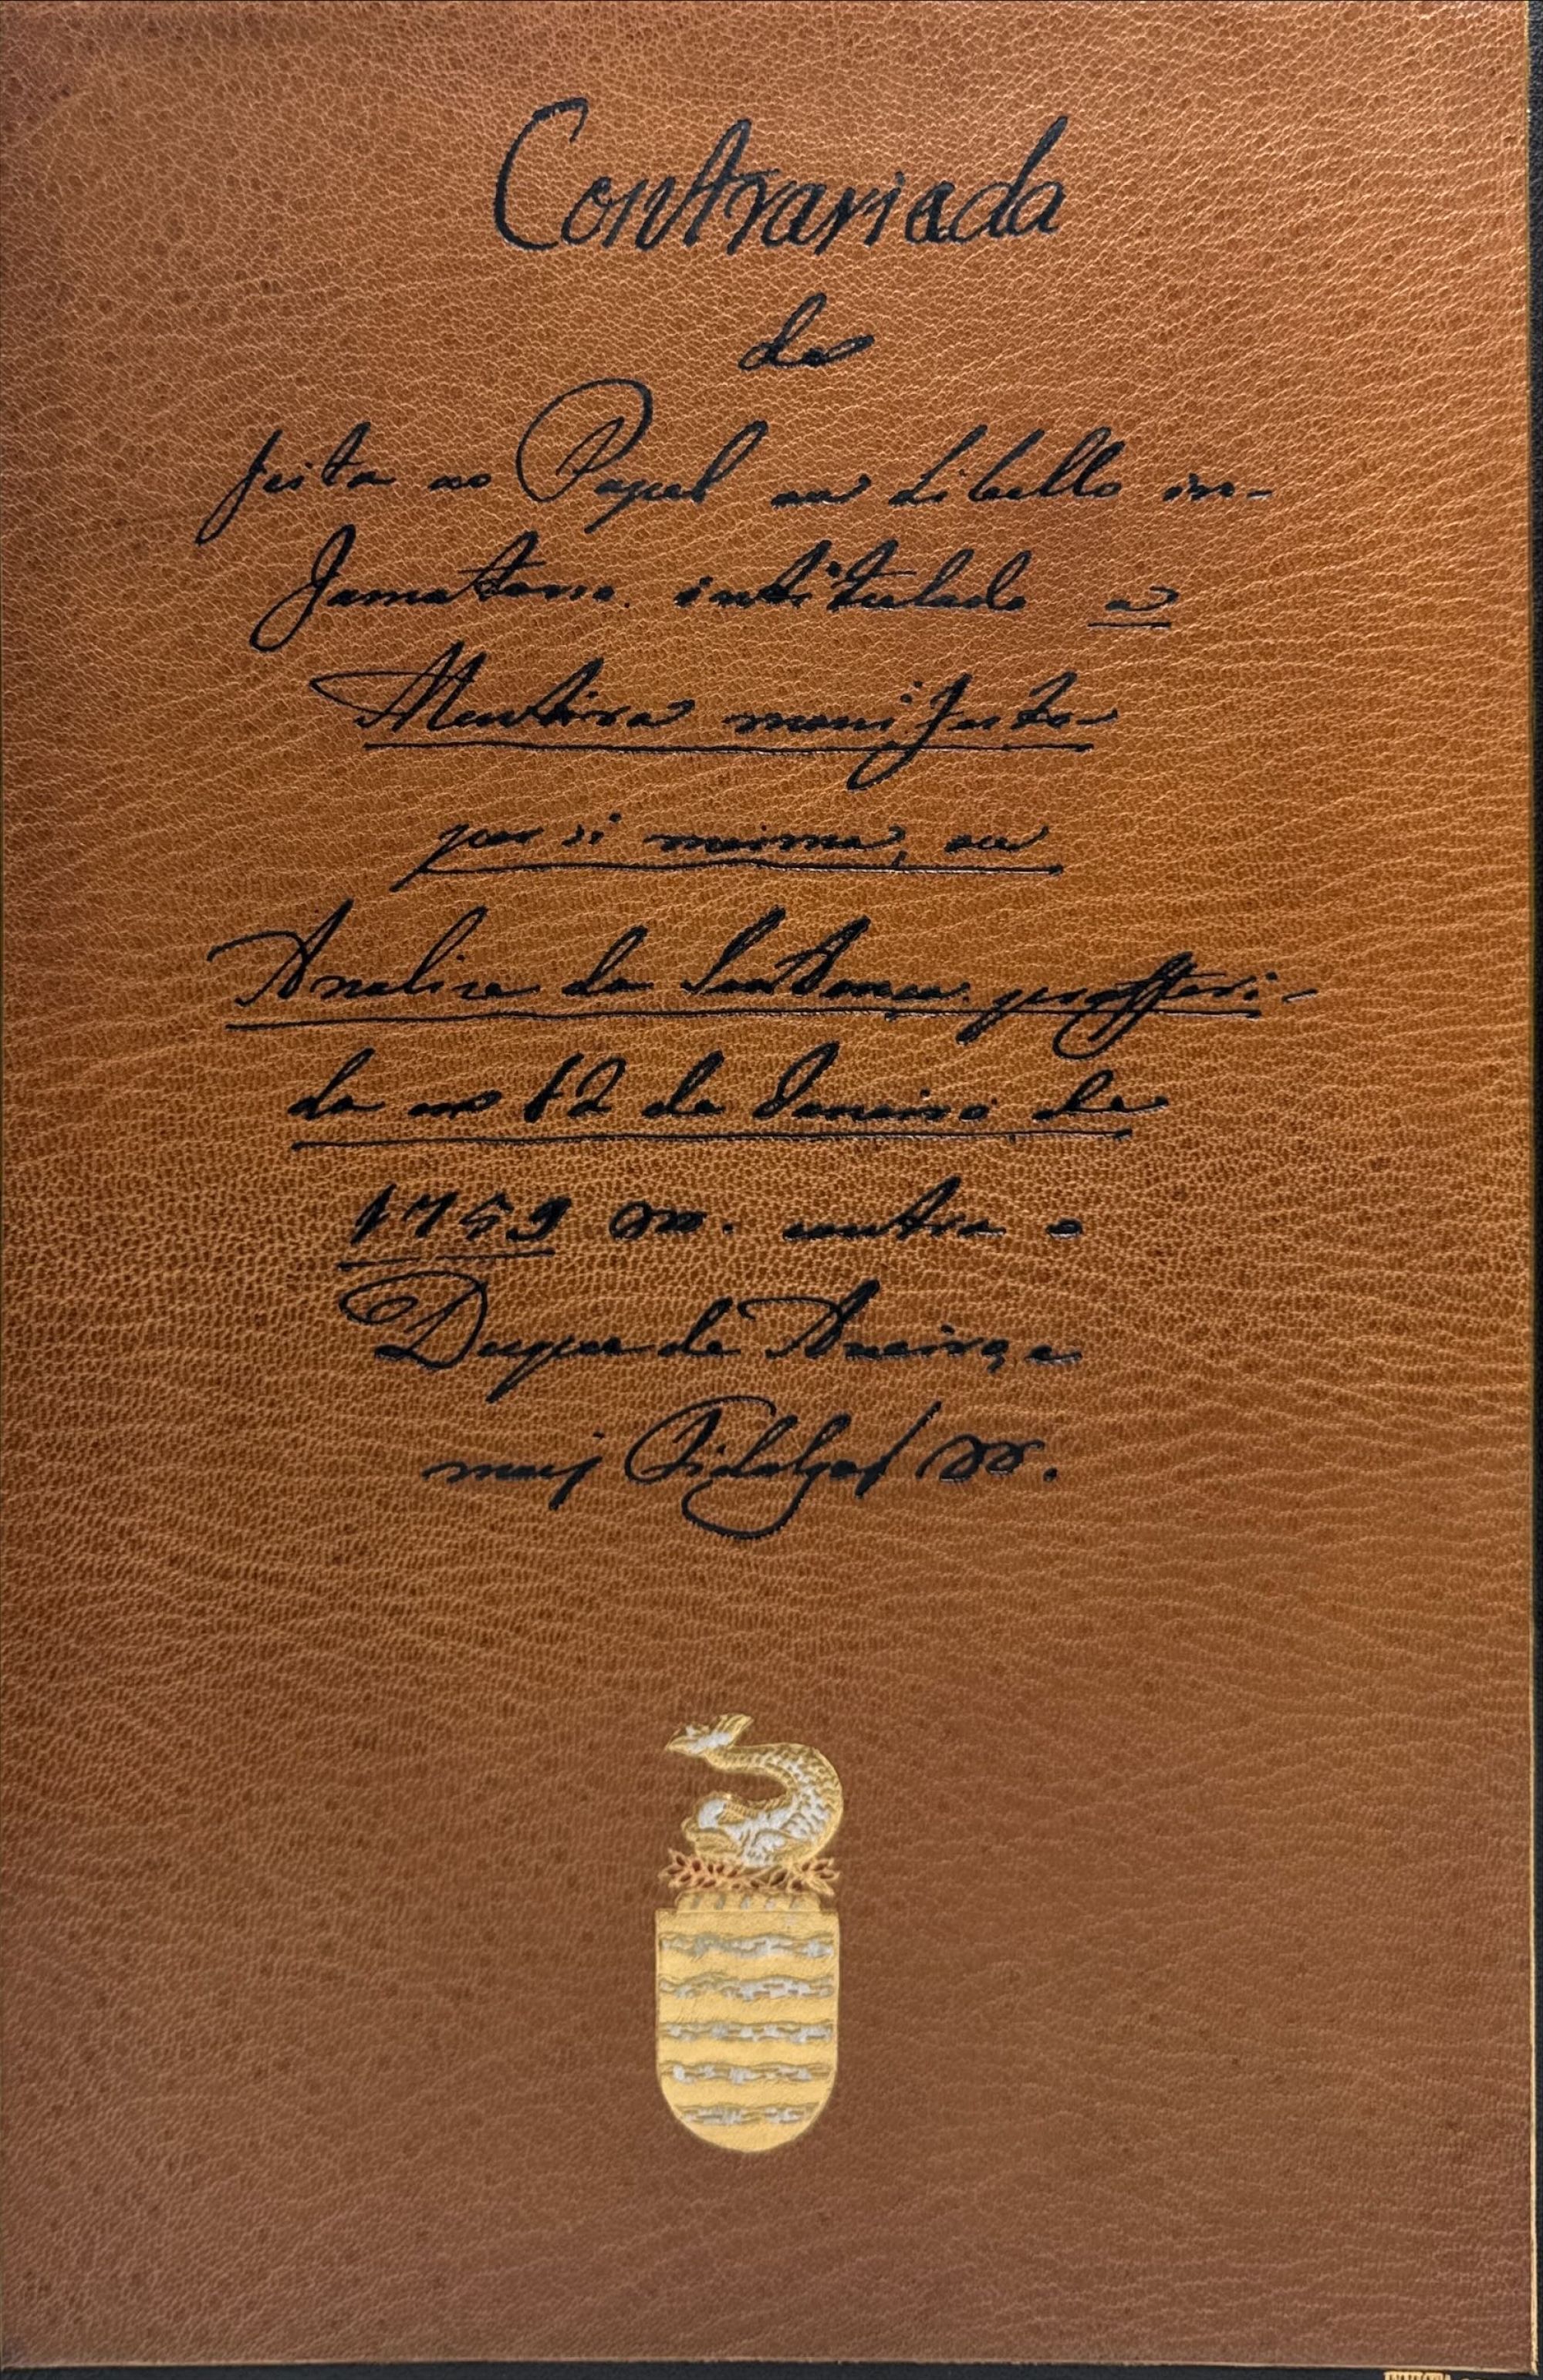 Contrariada
de
feita ao Papel ou Libello in-
famatorio intitulado a
Mentira manifesta
por si mesma, ou
Analize da Sentença profferi-
da em 12 de Janeiro de
1759 contra o
Duque de Aveiro, e
maiz Fidalgos